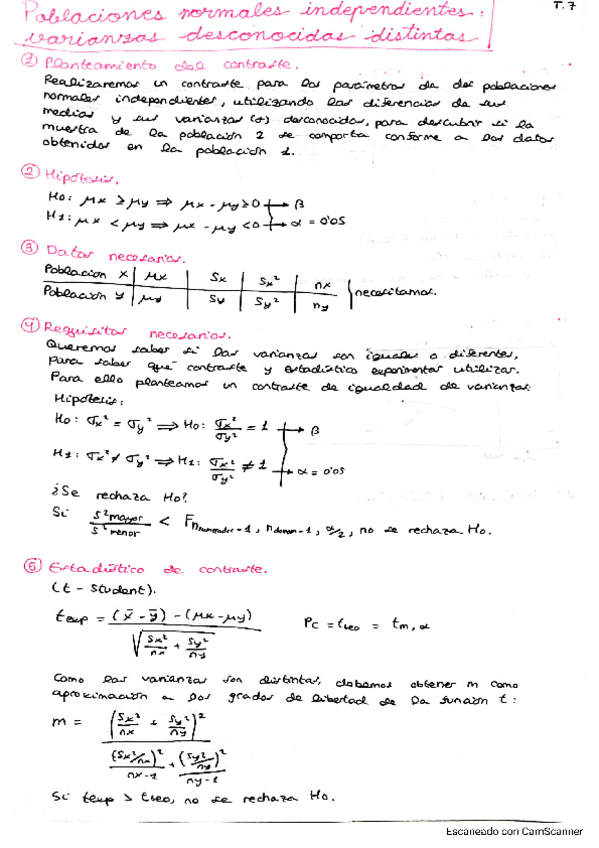 Poblaciones normales independientes: T.7
varianzas desconocidas distintas
① Planteamiento del contraste.
Realizaremos un contraste para los parámetros de dos poblaciones
normales independientes, utilizando las diferencias de sus
medias y sus varianzas (≠) desconocidas, para descubrir si la
muestra de la población 2 se comporta conforme a los datos
obtenidos en la población 1.
② Hipótesis.
H0: μx ≥ μy ⇒ μx - μy ≥ 0 → β
H1: μx < μy ⇒ μx - μy < 0 → α = 0'05
③ Datos necesarios.
Población x | μx | Sx | Sx² | nx
Población y | μy | Sy | Sy² | ny
necesitamos.
④ Requisitos necesarios.
Queremos saber si las varianzas son iguales o diferentes,
para saber qué contraste y estadístico experimental utilizar.
Para ello planteamos un contraste de igualdad de varianzas:
Hipótesis:
H0: σx² = σy² ⇒ H0: σx²/σy² = 1 → β
H1: σx² ≠ σy² ⇒ H1: σx²/σy² ≠ 1 → α = 0'05
¿Se rechaza H0?
Si S²mayor/S²menor < Fnnumerador-1, ndenom-1, α/2, no se rechaza H0.
⑤ Estadístico de contraste.
(t - Student).
texp = (x̄ - ȳ) - (μx - μy) / √(Sx²/nx + Sy²/ny) Pc = tteo = tm, α
Como las varianzas son distintas, debemos obtener m como
aproximación a los grados de libertad de la función t:
m = (Sx²/nx + Sy²/ny)² / ((Sx²/nx)²/nx-1 + (Sy²/ny)²/ny-1)
Si texp > tteo, no se rechaza H0.
Escaneado con CamScanner